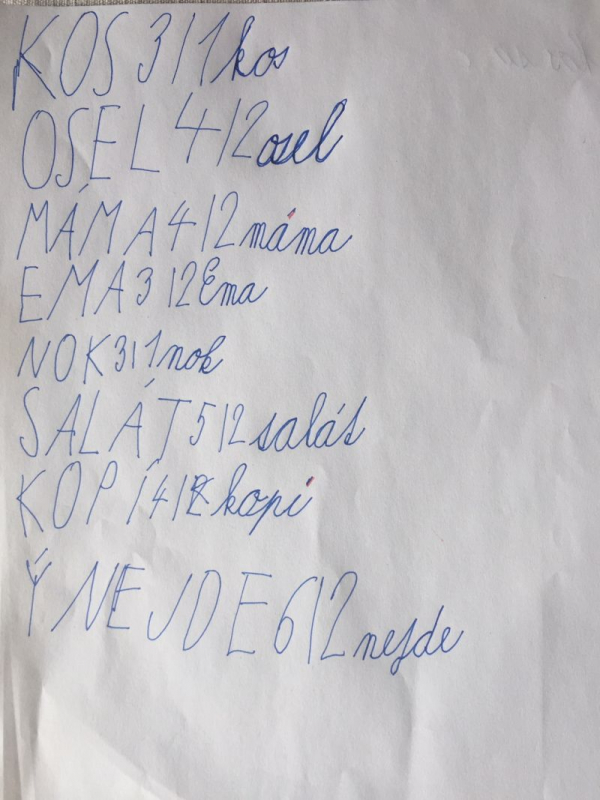 KOS 3|1 kos
OSEL 4|2 osel
MÁMA 4|2 máma
EMA 3|2 Ema
NOK 3|1 nok
SALÁT 5|2 salát
KOPÍ 4|2 kopí
Ý NEJDE 6|2 nejde